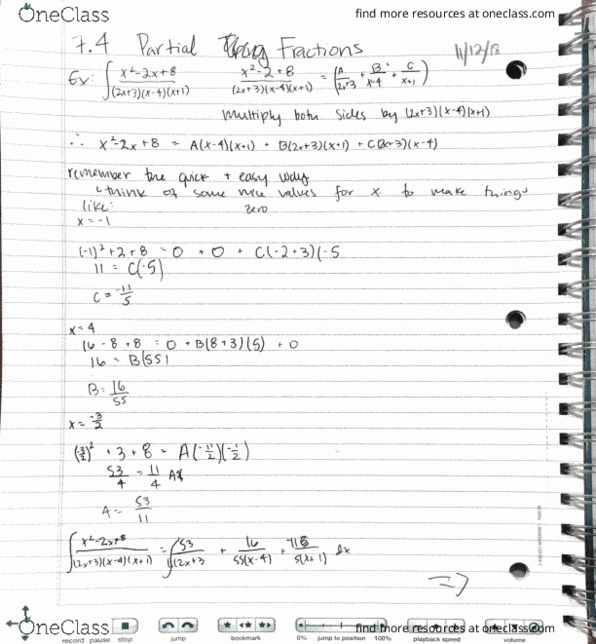 OneClass
find more resources at oneclass.com
7.4 Partial Fractions 11/12/13
Ex: ∫ x²-2x+8 / (2x+3)(x-4)(x+1)   x²-2+8 / (2x+3)(x-4)(x+1) = (A/2x+3 + B/x-4 + C/x+1)
Multiply both sides by (2x+3)(x-4)(x+1)
∴ x²-2x+8 = A(x-4)(x+1) + B(2x+3)(x+1) + C(2x+3)(x-4)
remember the quick + easy way
think of some nice values for x to make things
like: zero
x = -1
(-1)² + 2 + 8 = 0 + 0 + C(-2+3)(-5
11 = C(-5)
C = -11/5
x = 4
16 - 8 + 8 = 0 + B(8+3)(5) + 0
16 = B(55)
B = 16/55
x = -3/2
(3/2)² + 3 + 8 = A(-11/2)(-1/2)
53/4 = 11/4 A
A = 53/11
∫ x²-2x+8 / (2x+3)(x-4)(x+1) = ∫ 53/11(2x+3 + 16/55(x-4) + -11/5(x+1) dx
⇒
OneClass
find more resources at oneclass.com
record pause stop jump bookmark 0% jump to position 100% playback speed volume